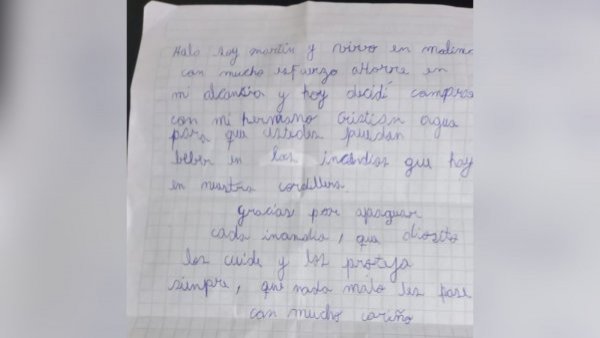 Hola soy martin y vivo en molina
con mucho esfuerzo ahorre en
mi alcansia y hoy decidi comprar
con mi hermano cristian agua
para que ustedes puedan
beber en los incendios que hay
en nuestra cordillera
gracias por apaguar
cada incendio, que diosito
los cuide y los protaja
sienpre, que nada malo les pase
con mucho cariño